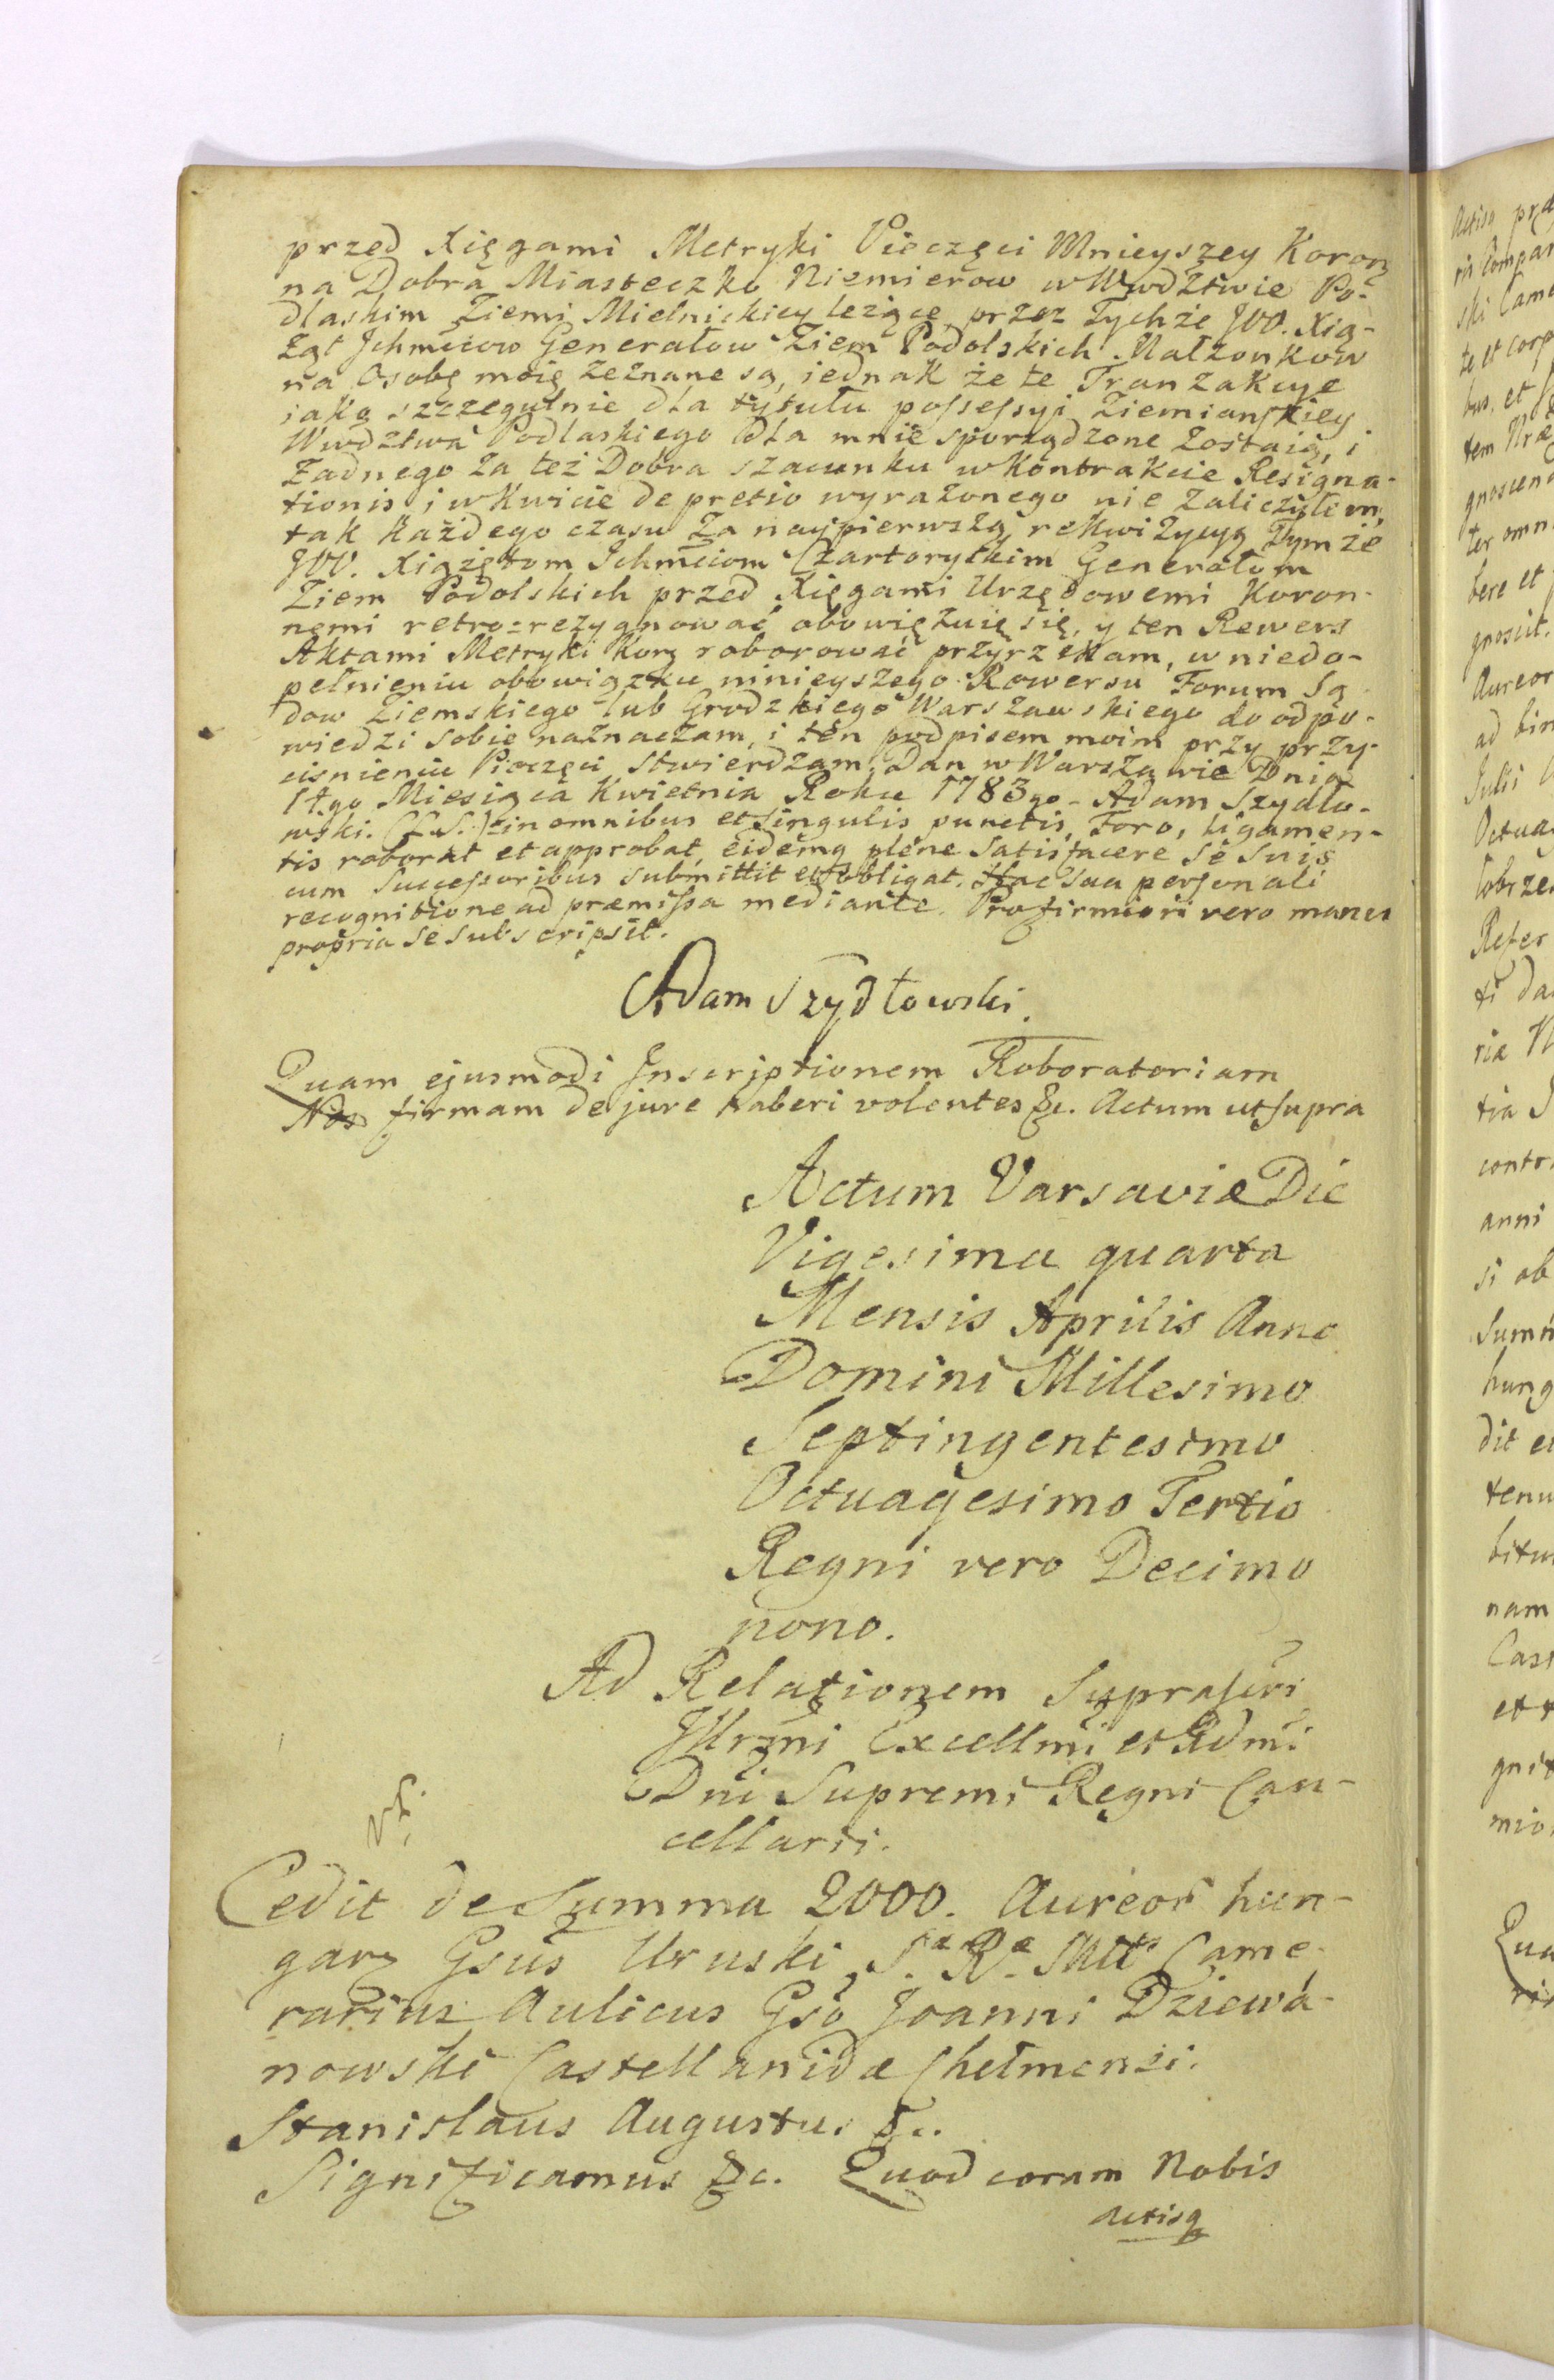 przed Xięgami Metryki Pieczęci Mnieyszey Koron
na Dobra Miasteczko Niemierow w Wwdztwie Po-
dlaskim Ziemi Mielnickiey leżące, przez Tychże JOO. Xią-
żąt Jchmciow Generałow Ziem Podolskich Małżonkow
na Osobę moię zeznane są, iednak że te Tranzakcye
iako szczegulnie dla tytułu possessyi Ziemianskiey
Wwdztwa Podlaskiego dla mnie sporządzone zostaią, i
żadnego za też Dobra szacunku w Kontrakcie Resigna-
tionis i w Kwicie de pretio wyrażonego nie zaliczyłem,
tak każdego czasu za naypierwszą rekwizycyą Tymże
JOO. Xiążętom Jchmciom Czartoryskim Generałom
Ziem Podolskich przed Xięgami Urzędowemi Koron-
nemi retro=rezygnować obowięzuię się, y ten Rewers
Aktami Metryki Korȝ roborować przyrzekam, w niedo-
pełnieniu obowiązku ninieyszego Rewersu Forum Są-
dow Ziemskiego lub Grodzkiego Warszawskiego do odpo-
wiedzi sobie naznaczam, i ten podpisem moim przy przy-
cisnieniu Pieczęci stwierdzam, Dan w Warszawie Dnia
14go Miesiąca Kwietnia Roku 1783go - Adam Szydło-
wski. (L.S.) = in omnibus et singulis punctis, Foro, ligamen-
tis roborat et approbat, eidemq plene satisfacere se suis
cum Successoribus submittit et obligat. Hac sua personali
recognitione ad præmissa mediante. Pro firmiori vero manu
propria se subscripsit.
Adam Szydłowski.
Quam ejusmodi Inscriptionem Roboratoriam
Nos firmam de jure haberi volentes &c. Actum ut supra
Actum Varsaviæ Die
Vigesima quarta
Mensis Aprilis Anno
Domini Millesimo
Septingentesimo
Octuagesimo Tertio
Regni vero Decimo
nono.
Ad Relationem Suprascri
Illrmi Excellmi et Rdmi
Dni Supremi Regni Can-
cellarii.
Cedit de Summa 2000. Aureor hun-
garȝ Gsus Uruski S. R. Mtts Came-
rarius Aulicus Gso Joanni Dziewa-
nowski Castellanidæ Chełmensi.
Stanislaus Augustus &c.
Significamus &c. Quod coram Nobis
Actisq